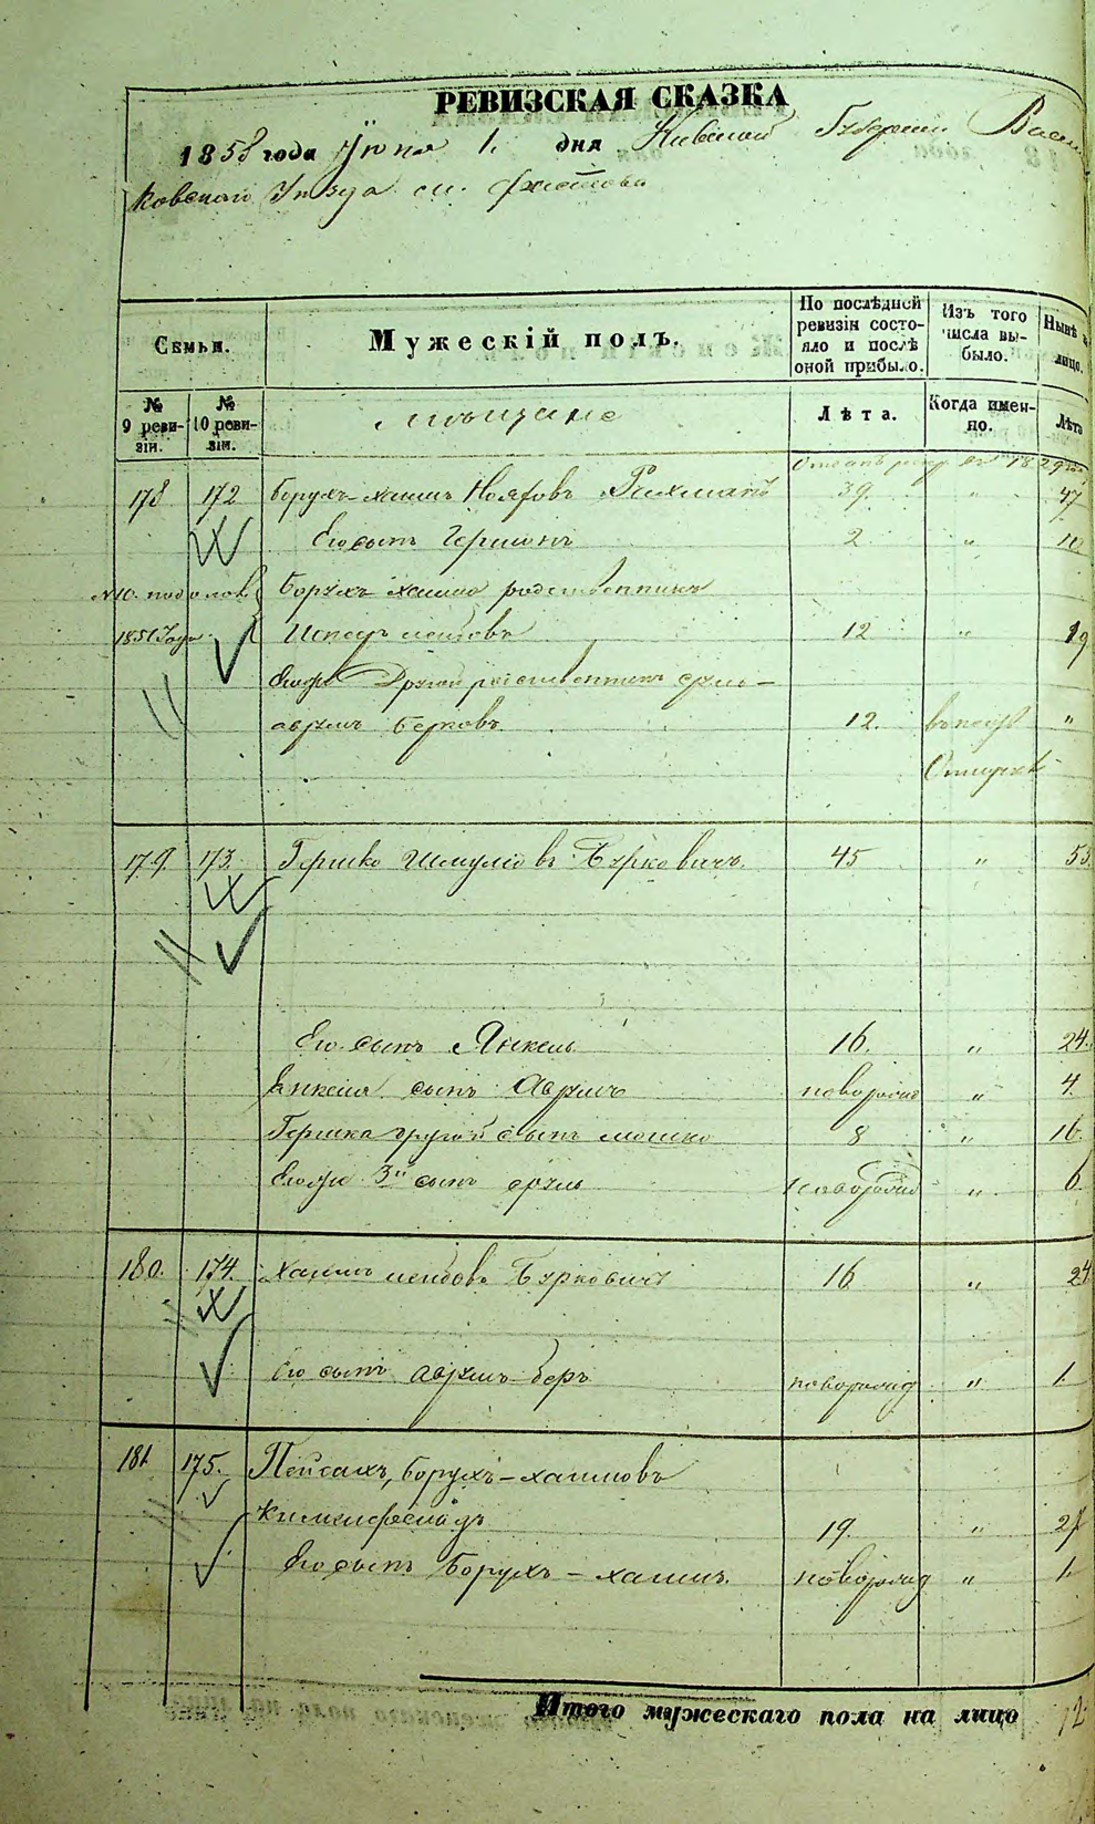 РЕВИЗСКАЯ СКАЗКА
1858 года Іюня 1. дня Кiевской Губернiи Васил
ковскаго Уѣзда м. Фастова
Семьи. Мужескiй полъ. По послѣдней ревизiи состояло и послѣ оной прибыло. Изъ того числа выбыло. Нынѣ лицо.
№ 9 ревизiи. № 10 ревизiи. мѣщане Лѣта. Когда именно. Лѣта
178 172 Борухъ-хаимъ 39. " 47
Его сынъ Гершонъ 2 " 10
Борухъ хаима родственникъ
1851 Года 12 " 19
Его же Другой родственникъ сруль-
аврумъ Берковъ 12. "
179. 173. Гершко Шмулiовъ Бурковичъ. 45 " 53
Его сынъ Янкель 16. " 24.
Янкеля сынъ Аврумъ новорожд " 4
Гершка другой сынъ мошко 8 " 16.
Его же 3й сынъ сруль новорожд " 6
180. 174. Хаимъ Бурковичъ 16 " 24
Его сынъ аврумъ-беръ новорожд " 1
181 175. Пейсахъ, борухъ-хаимовъ
19. " 27
Его сынъ Борухъ-хаимъ. новорожд " 1.
Итого мужескаго пола на лицо 12